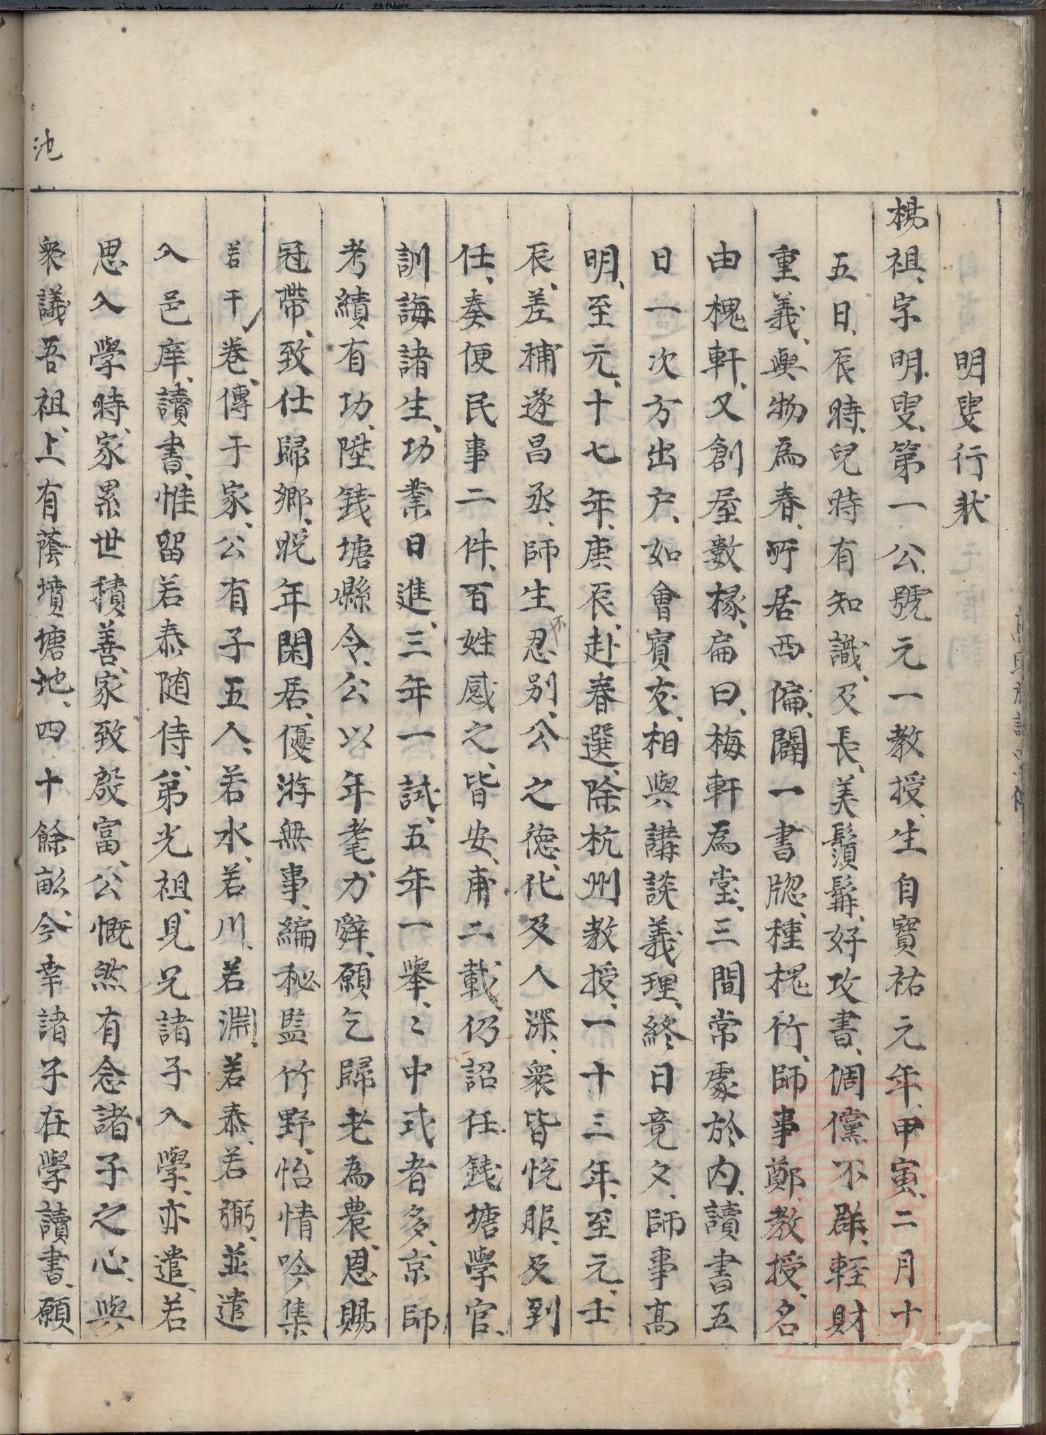 明叟行狀
楊祖、字明叟、第一公、號元一教授、生自寶祐元年、甲寅、二月十
五日、辰時、兒時有知識、及長、美鬚髯、好攻書、倜儻不群、輕財
重義、與物為春、所居西偏、闢一書牕、種槐竹、師事鄭教授、名
由槐軒、又創屋數椽、扁曰、梅軒為堂、三間常處於内、讀書五
日一次方出戶、如會賓友、相與講談義理、終日竟夕、師事髙
明、至元、十七年、庚辰、赴春選、除杭州教授、一十三年、至元、壬
辰、差補遂昌丞、師生不忍别、公之德、化及人深、衆皆悅服、及到
任、奏便民事二件、百姓感之、皆安、甫二載、仍詔任錢塘學官、
訓誨諸生、功業日進、三年一試、五年一舉、〻中式者多、京師
考績有功、陞錢塘縣令、公以年耄力辭、願乞歸老為農、恩賜
冠帶、致仕歸鄉、晚年閑居、優游無事、編秘監竹野、怡情吟集
若干卷、傳于家、公有子五人、若水、若川、若淵、若泰、若弼、並遣
入邑庠、讀書、惟留若泰随侍、弟光祖、見兄諸子入學、亦遣、若
思入學時、家累世積善、家致殷富、公慨然有念諸子之心、與
衆議吾祖、上有蔭墳塘地、四十餘畝、今幸諸子在學讀書、願
池